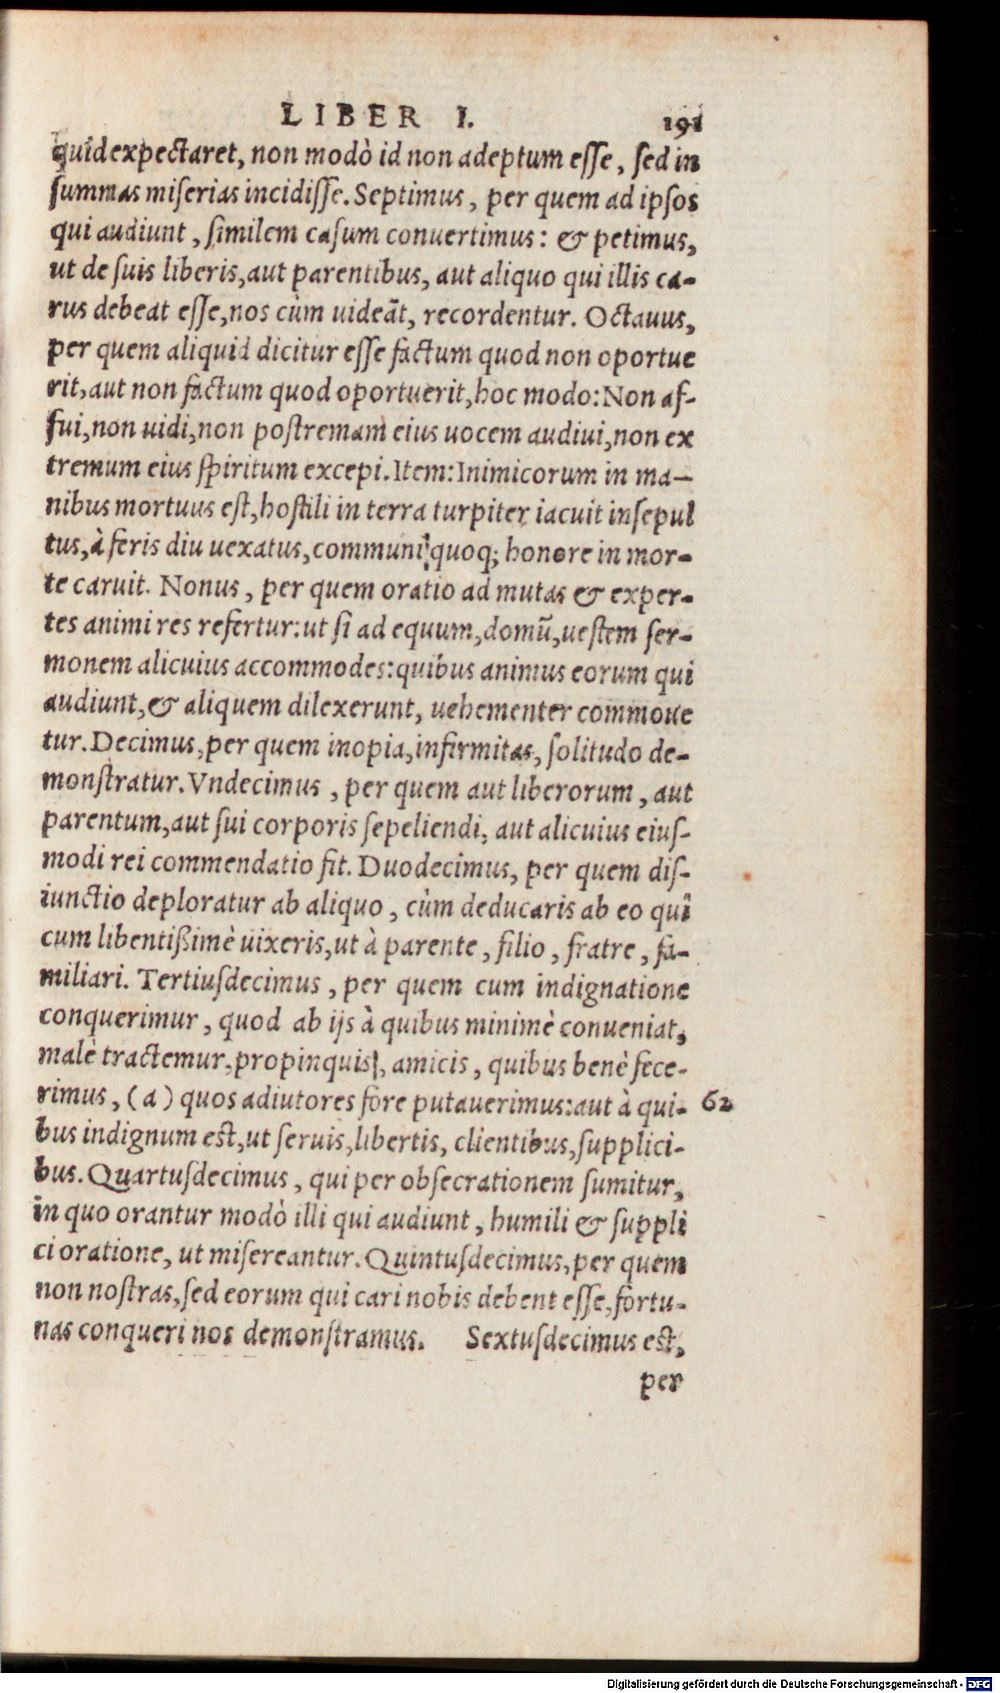 LIBER I. 191
quid expectaret, non modò id non adeptum eſſe, ſed in
ſummas miſerias incidiſſe. Septimus, per quem ad ipſos
qui audiunt, ſimilem caſum conuertimus: & petimus,
ut de ſuis liberis, aut parentibus, aut aliquo qui illis ca-
rus debeat eſſe, nos cùm uideãt, recordentur. Octauus,
per quem aliquid dicitur eſſe factum quod non oportue
rit, aut non factum quod oportuerit, hoc modo: Non af-
fui, non uidi, non poſtremam eius uocem audiui, non ex
tremum eius ſpiritum excepi. Item: Inimicorum in ma-
nibus mortuus eſt, hoſtili in terra turpiter iacuit inſepul
tus, à feris diu uexatus, communi quoq; honore in mor-
te caruit. Nonus, per quem oratio ad mutas & exper-
tes animi res refertur: ut ſi ad equum, domũ, ueſtem ſer-
monem alicuius accommodes: quibus animus eorum qui
audiunt, & aliquem dilexerunt, uehementer commoue
tur. Decimus, per quem inopia, infirmitas, ſolitudo de-
monſtratur. Vndecimus, per quem aut liberorum, aut
parentum, aut ſui corporis ſepeliendi, aut alicuius eiuſ-
modi rei commendatio fit. Duodecimus, per quem diſ-
iunctio deploratur ab aliquo, cùm deducaris ab eo qui
cum libentißimè uixeris, ut à parente, filio, fratre, fa-
miliari. Tertiuſdecimus, per quem cum indignatione
conquerimur, quod ab ijs à quibus minimè conueniat,
malè tractemur, propinquis, amicis, quibus benè fece-
rimus, (a) quos adiutores fore putauerimus: aut à qui- 62
bus indignum eſt, ut ſeruis, libertis, clientibus, ſupplici-
bus. Quartuſdecimus, qui per obſecrationem ſumitur,
in quo orantur modò illi qui audiunt, humili & ſuppli
ci oratione, ut miſereantur. Quintuſdecimus, per quem
non noſtras, ſed eorum qui cari nobis debent eſſe, fortu-
nas conqueri nos demonſtramus. Sextuſdecimus eſt,
per
Digitalisierung gefördert durch die Deutsche Forschungsgemeinschaft - DFG